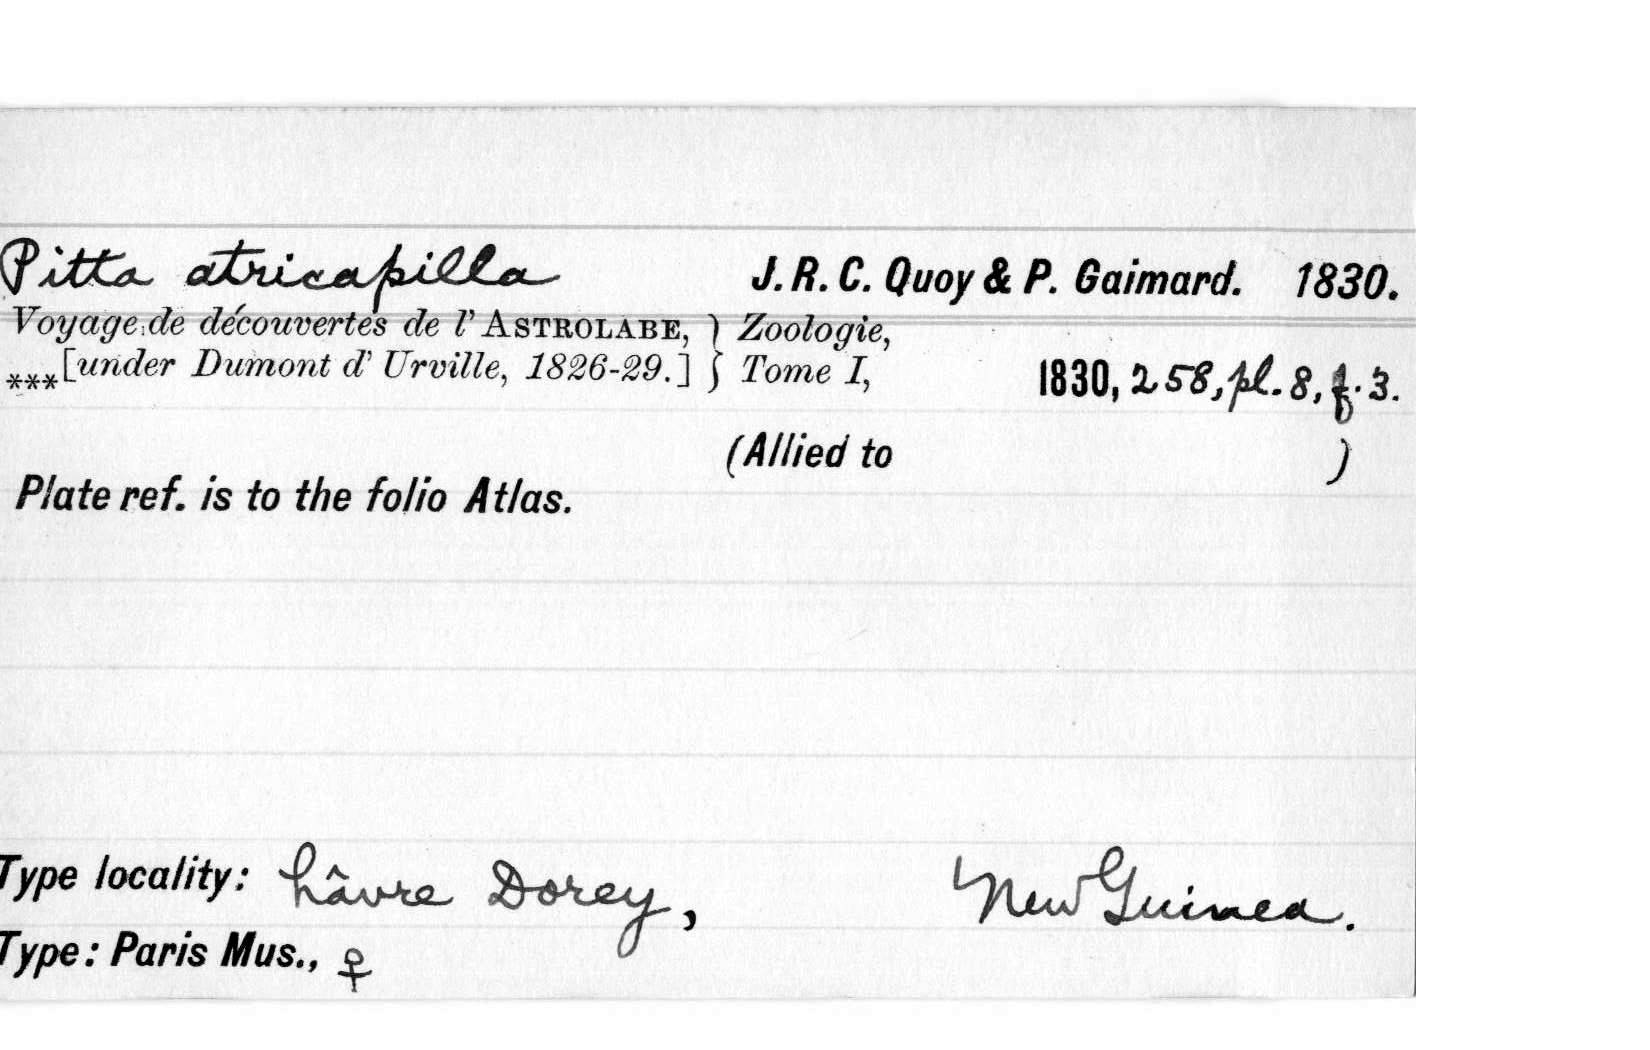 Pitta atricapilla J. R. C. Quoy & P. Gaimard. 1830.
Voyage de découvertes de l'ASTROLABE, } Zoologie,
***[under Dumont d'Urville, 1826-29.] } Tome I, 1830, 258, pl. 8, f. 3.
(Allied to )
Plate ref. is to the folio Atlas.
Type locality: hâvre Dorey, New Guinea.
Type: Paris Mus., ♀